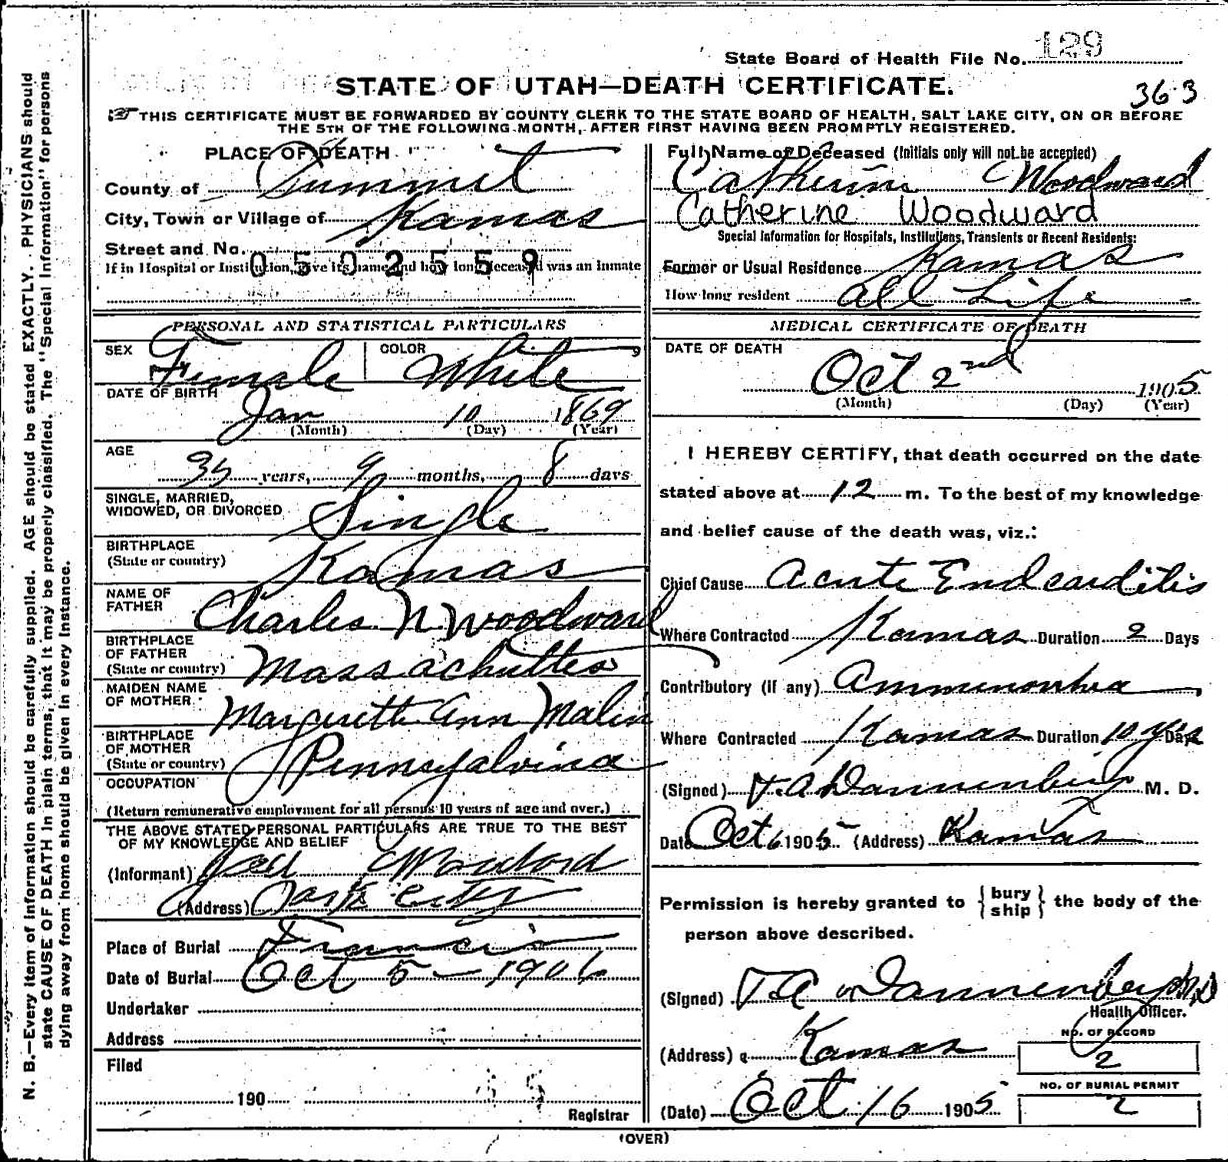 State Board of Health File No. 129
STATE OF UTAH—DEATH CERTIFICATE.
363
THIS CERTIFICATE MUST BE FORWARDED BY COUNTY CLERK TO THE STATE BOARD OF HEALTH, SALT LAKE CITY, ON OR BEFORE
THE 5TH OF THE FOLLOWING MONTH, AFTER FIRST HAVING BEEN PROMPTLY REGISTERED.
N. B.—Every item of information should be carefully supplied. AGE should be stated EXACTLY. PHYSICIANS should
state CAUSE OF DEATH in plain terms, that it may be properly classified. The "Special Information" for persons
dying away from home should be given in every instance.
PLACE OF DEATH
County of Summit
City, Town or Village of Kamas
Street and No.
0502559
If in Hospital or Institution, give its name and how long deceased was an inmate
PERSONAL AND STATISTICAL PARTICULARS
SEX Female COLOR White
DATE OF BIRTH
Jan 10 1869
(Month) (Day) (Year)
AGE
35 years, 9 months, 8 days
SINGLE, MARRIED,
WIDOWED, OR DIVORCED Single
BIRTHPLACE
(State or country) Kamas
NAME OF
FATHER Charles N Woodward
BIRTHPLACE
OF FATHER
(State or country) Massachuttes
MAIDEN NAME
OF MOTHER Margarett Ann Malin
BIRTHPLACE
OF MOTHER
(State or country) Pennsyalvina
OCCUPATION
(Return remunerative employment for all persons 10 years of age and over.)
THE ABOVE STATED PERSONAL PARTICULARS ARE TRUE TO THE BEST
OF MY KNOWLEDGE AND BELIEF
(Informant)
(Address) Park City
Place of Burial Francis
Date of Burial Oct 5 — 1906
Undertaker
Address
Filed
190
Registrar
Full Name of Deceased (Initials only will not be accepted)
Catherine Woodward
Catherine Woodward
Special Information for Hospitals, Institutions, Transients or Recent Residents:
Former or Usual Residence Kamas
How long resident all Life
MEDICAL CERTIFICATE OF DEATH
DATE OF DEATH
Oct 2nd 1905
(Month) (Day) (Year)
I HEREBY CERTIFY, that death occurred on the date
stated above at 12 m. To the best of my knowledge
and belief cause of the death was, viz.:
Chief Cause Acute Endcarditis
Where Contracted Kamas Duration 2 Days
Contributory (if any)
Where Contracted Kamas Duration 10 yrs Days
(Signed) T. A. Dannenberg M. D.
Date Oct 6 1905 (Address) Kamas
Permission is hereby granted to { bury ship } the body of the
person above described.
(Signed) T A Dannenberg M.D
Health Officer.
(Address) Kamas
NO. OF RECORD
2
(Date) Oct 16 1905
NO. OF BURIAL PERMIT
2
(OVER)